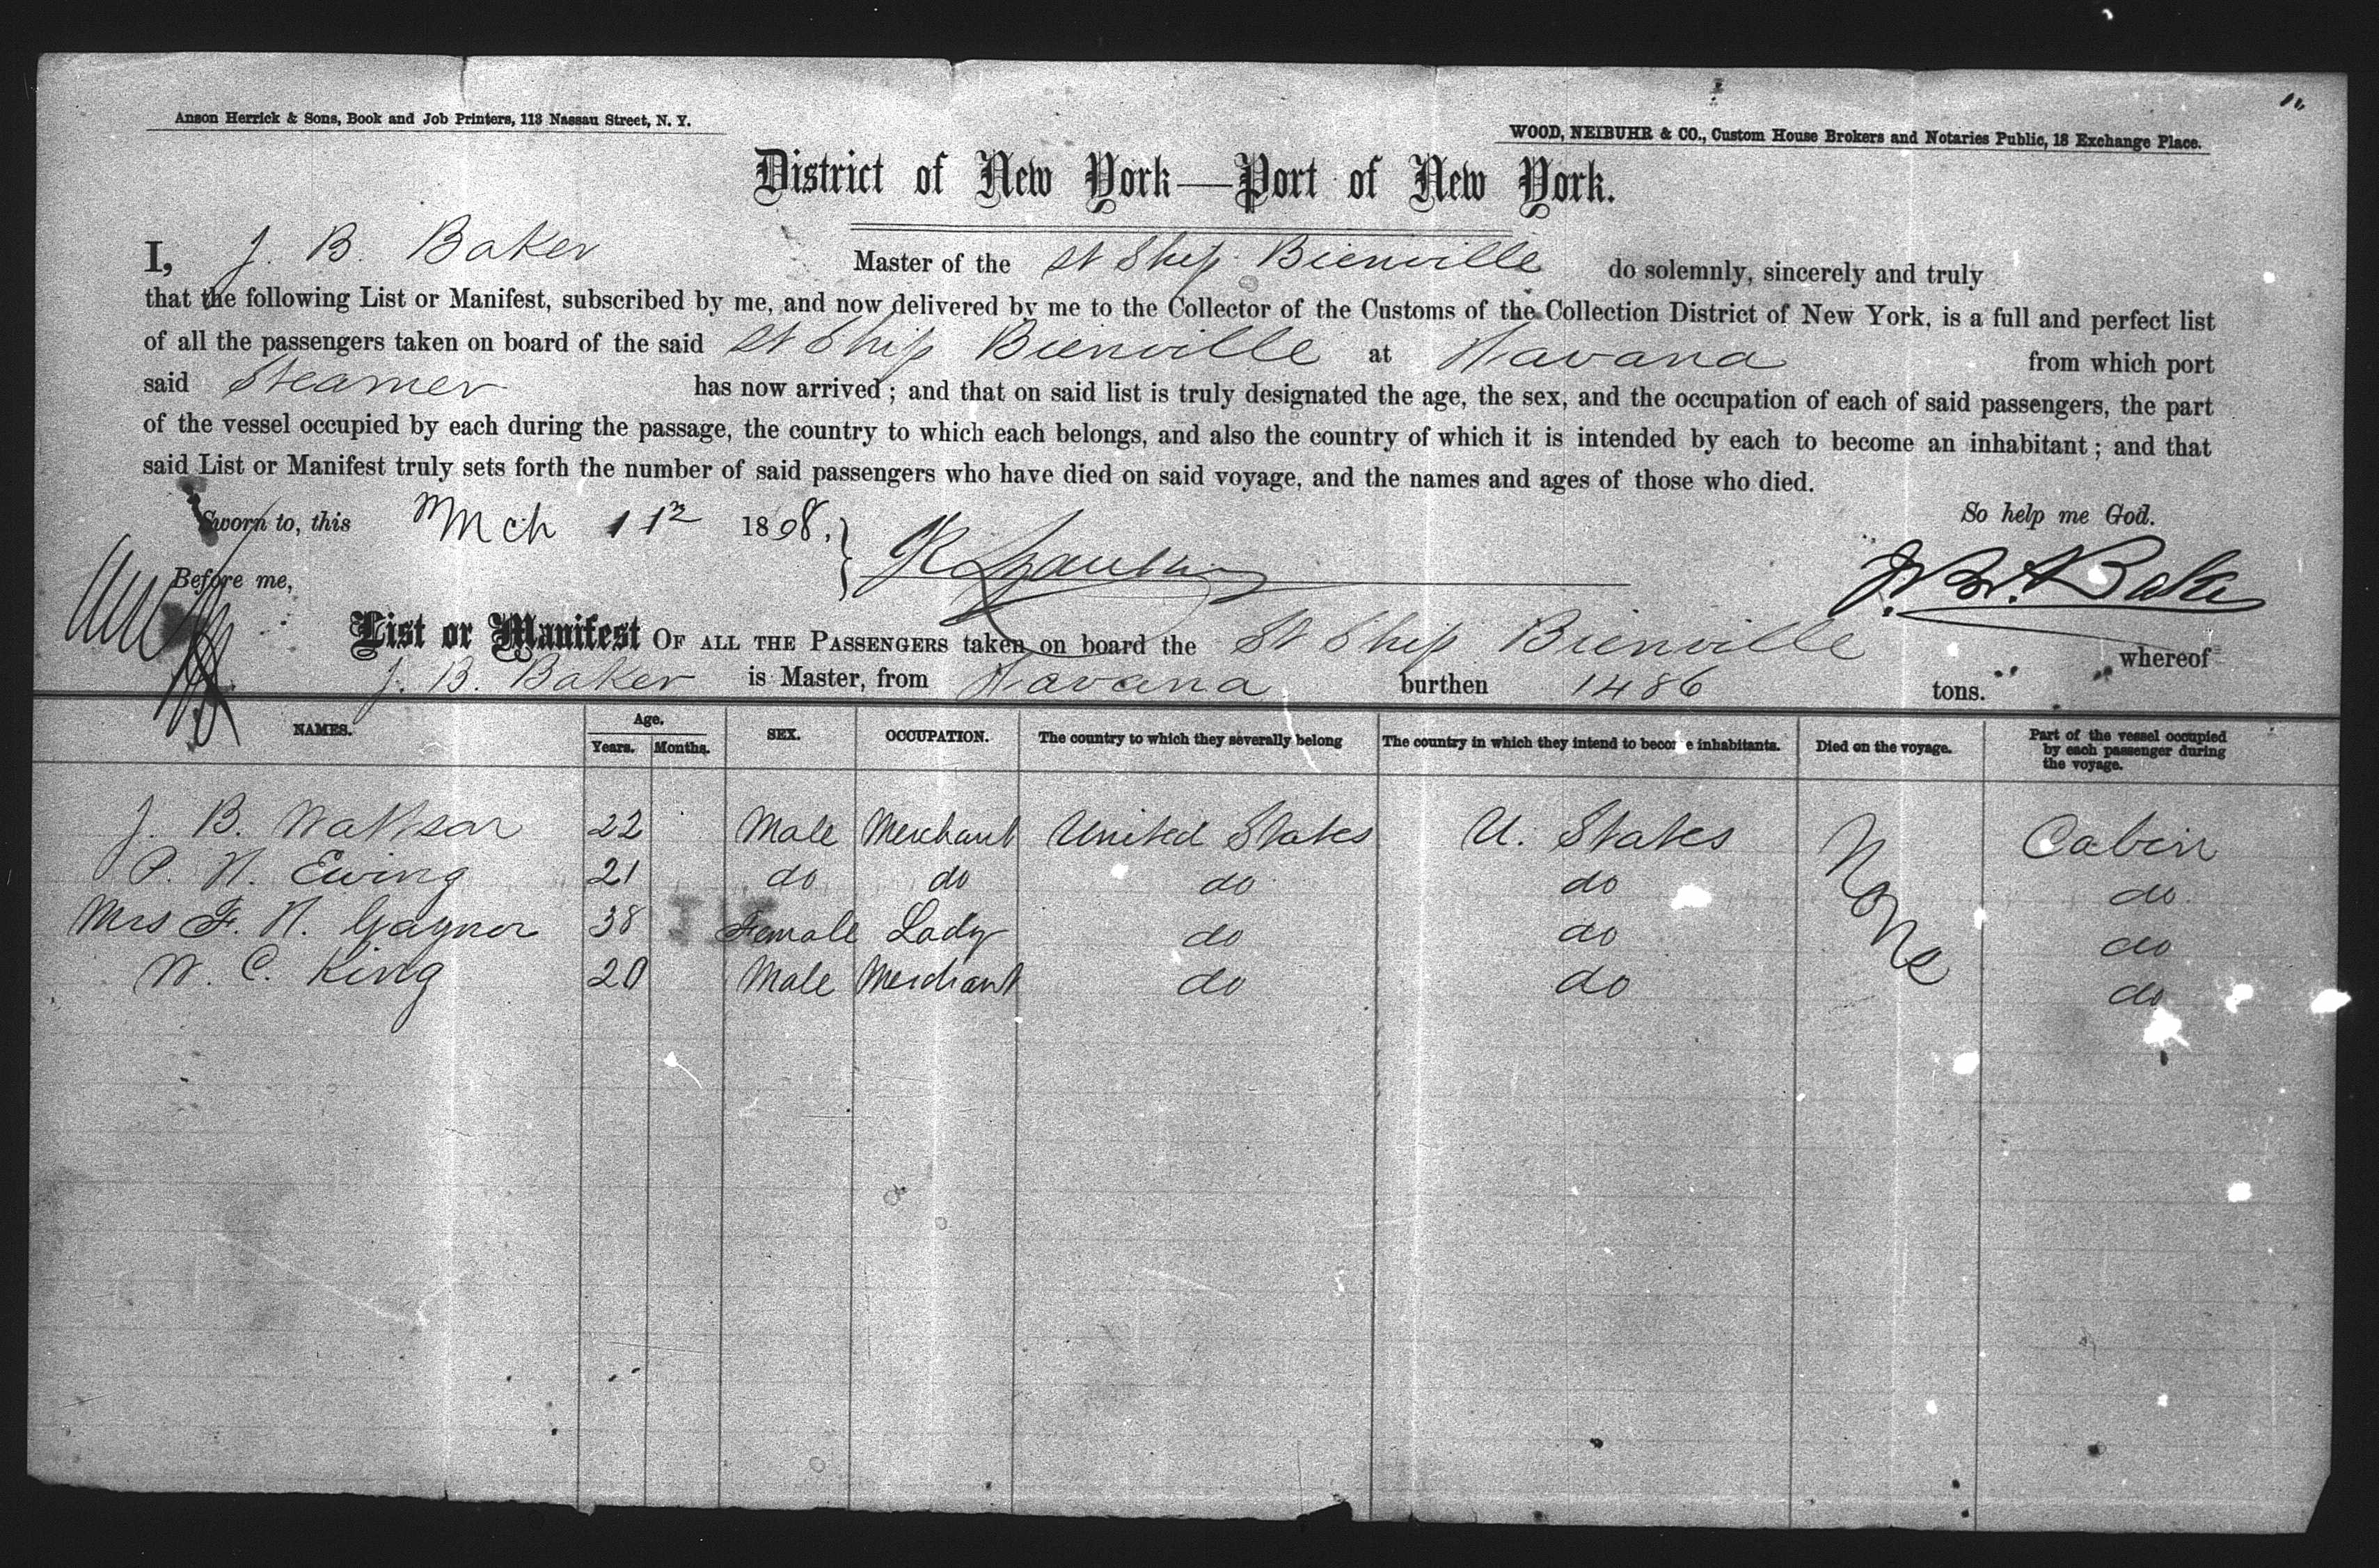 Anson Herrick & Sons, Book and Job Printers, 113 Nassau Street, N. Y.
WOOD, NEIBUHR & CO., Custom House Brokers and Notaries Public, 18 Exchange Place.
District of New York—Port of New York.
I, J. B. Baker Master of the St Ship Bienville do solemnly, sincerely and truly
that the following List or Manifest, subscribed by me, and now delivered by me to the Collector of the Customs of the Collection District of New York, is a full and perfect list
of all the passengers taken on board of the said St Ship Bienville at Havana from which port
said Steamer has now arrived; and that on said list is truly designated the age, the sex, and the occupation of each of said passengers, the part
of the vessel occupied by each during the passage, the country to which each belongs, and also the country of which it is intended by each to become an inhabitant; and that
said List or Manifest truly sets forth the number of said passengers who have died on said voyage, and the names and ages of those who died.
So help me God.
Sworn to, this Mch 11 18
Before me,
J. B. Baker
List or Manifest OF ALL THE PASSENGERS taken on board the St Ship Bienville whereof
J. B. Baker is Master, from Havana burthen 1486 tons.
NAMES. Age. Years. Months. SEX. OCCUPATION. The country to which they severally belong The country in which they intend to become inhabitants. Died on the voyage. Part of the vessel occupied by each passenger during the voyage.
J. B. 22 Male Merchant United States U. States None Cabin
P. N. Ewing 21 do do do do do
Mrs F. N. Gaynor 38 Female Lady do do do
W. C. King 20 Male Merchant do do do